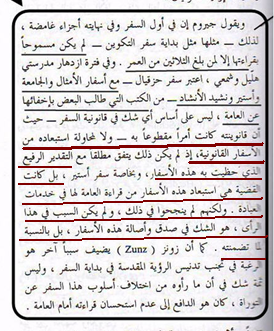 ويقول جيروم إن في أول السفر وفي نهايته أجزاء غامضة ،
لذلك ــ مثلها مثل بداية سفر التكوين ــ لم يكن مسموحاً
بقراءتها إلا لمن بلغ الثلاثين من العمر . وفي فترة ازدهار مدرستي
هليل وشمعي ، اعتبر سفر حزقيال ــ مع أسفار الأمثال والجامعة
وأستير ونشيد الأنشاد ــ من الكتب التي طالب البعض بإخفائها
عن العامة ، ليس على أساس أي شك في قانونية السفر ــ حيث
أن قانونيته كانت أمراً مقطوعاً به ــ ولا لمحاولة استبعاده من
الأسفار القانونية، إذ لم يكن ذلك يتفق مطلقا مع التقدير الرفيع
الذي حظيت به هذه الأسفار، وبخاصة سفر أستير ، بل كانت
القضية هي استبعاد هذه الأسفار من قراءة العامة لها في خدمات
العبادة . ولكنهم لم ينجحوا في ذلك ، ولم يكن السبب في هذا
الرأى ، هو الشك في صدق وأصالة هذه الأسفار ، بل بالنسبة
لما تضمنته . كما أن زونز (Zunz) يضيف سبباً آخر هو
الرغبة في تجنب تدنيس الرؤية المقدسة في بداية السفر ، وليس
ثمة شك في أن ما رأوه من اختلاف أسلوب هذا السفر عن
التوراة ، كان هو الدافع إلى عدم استحسان قراءته أمام العامة .